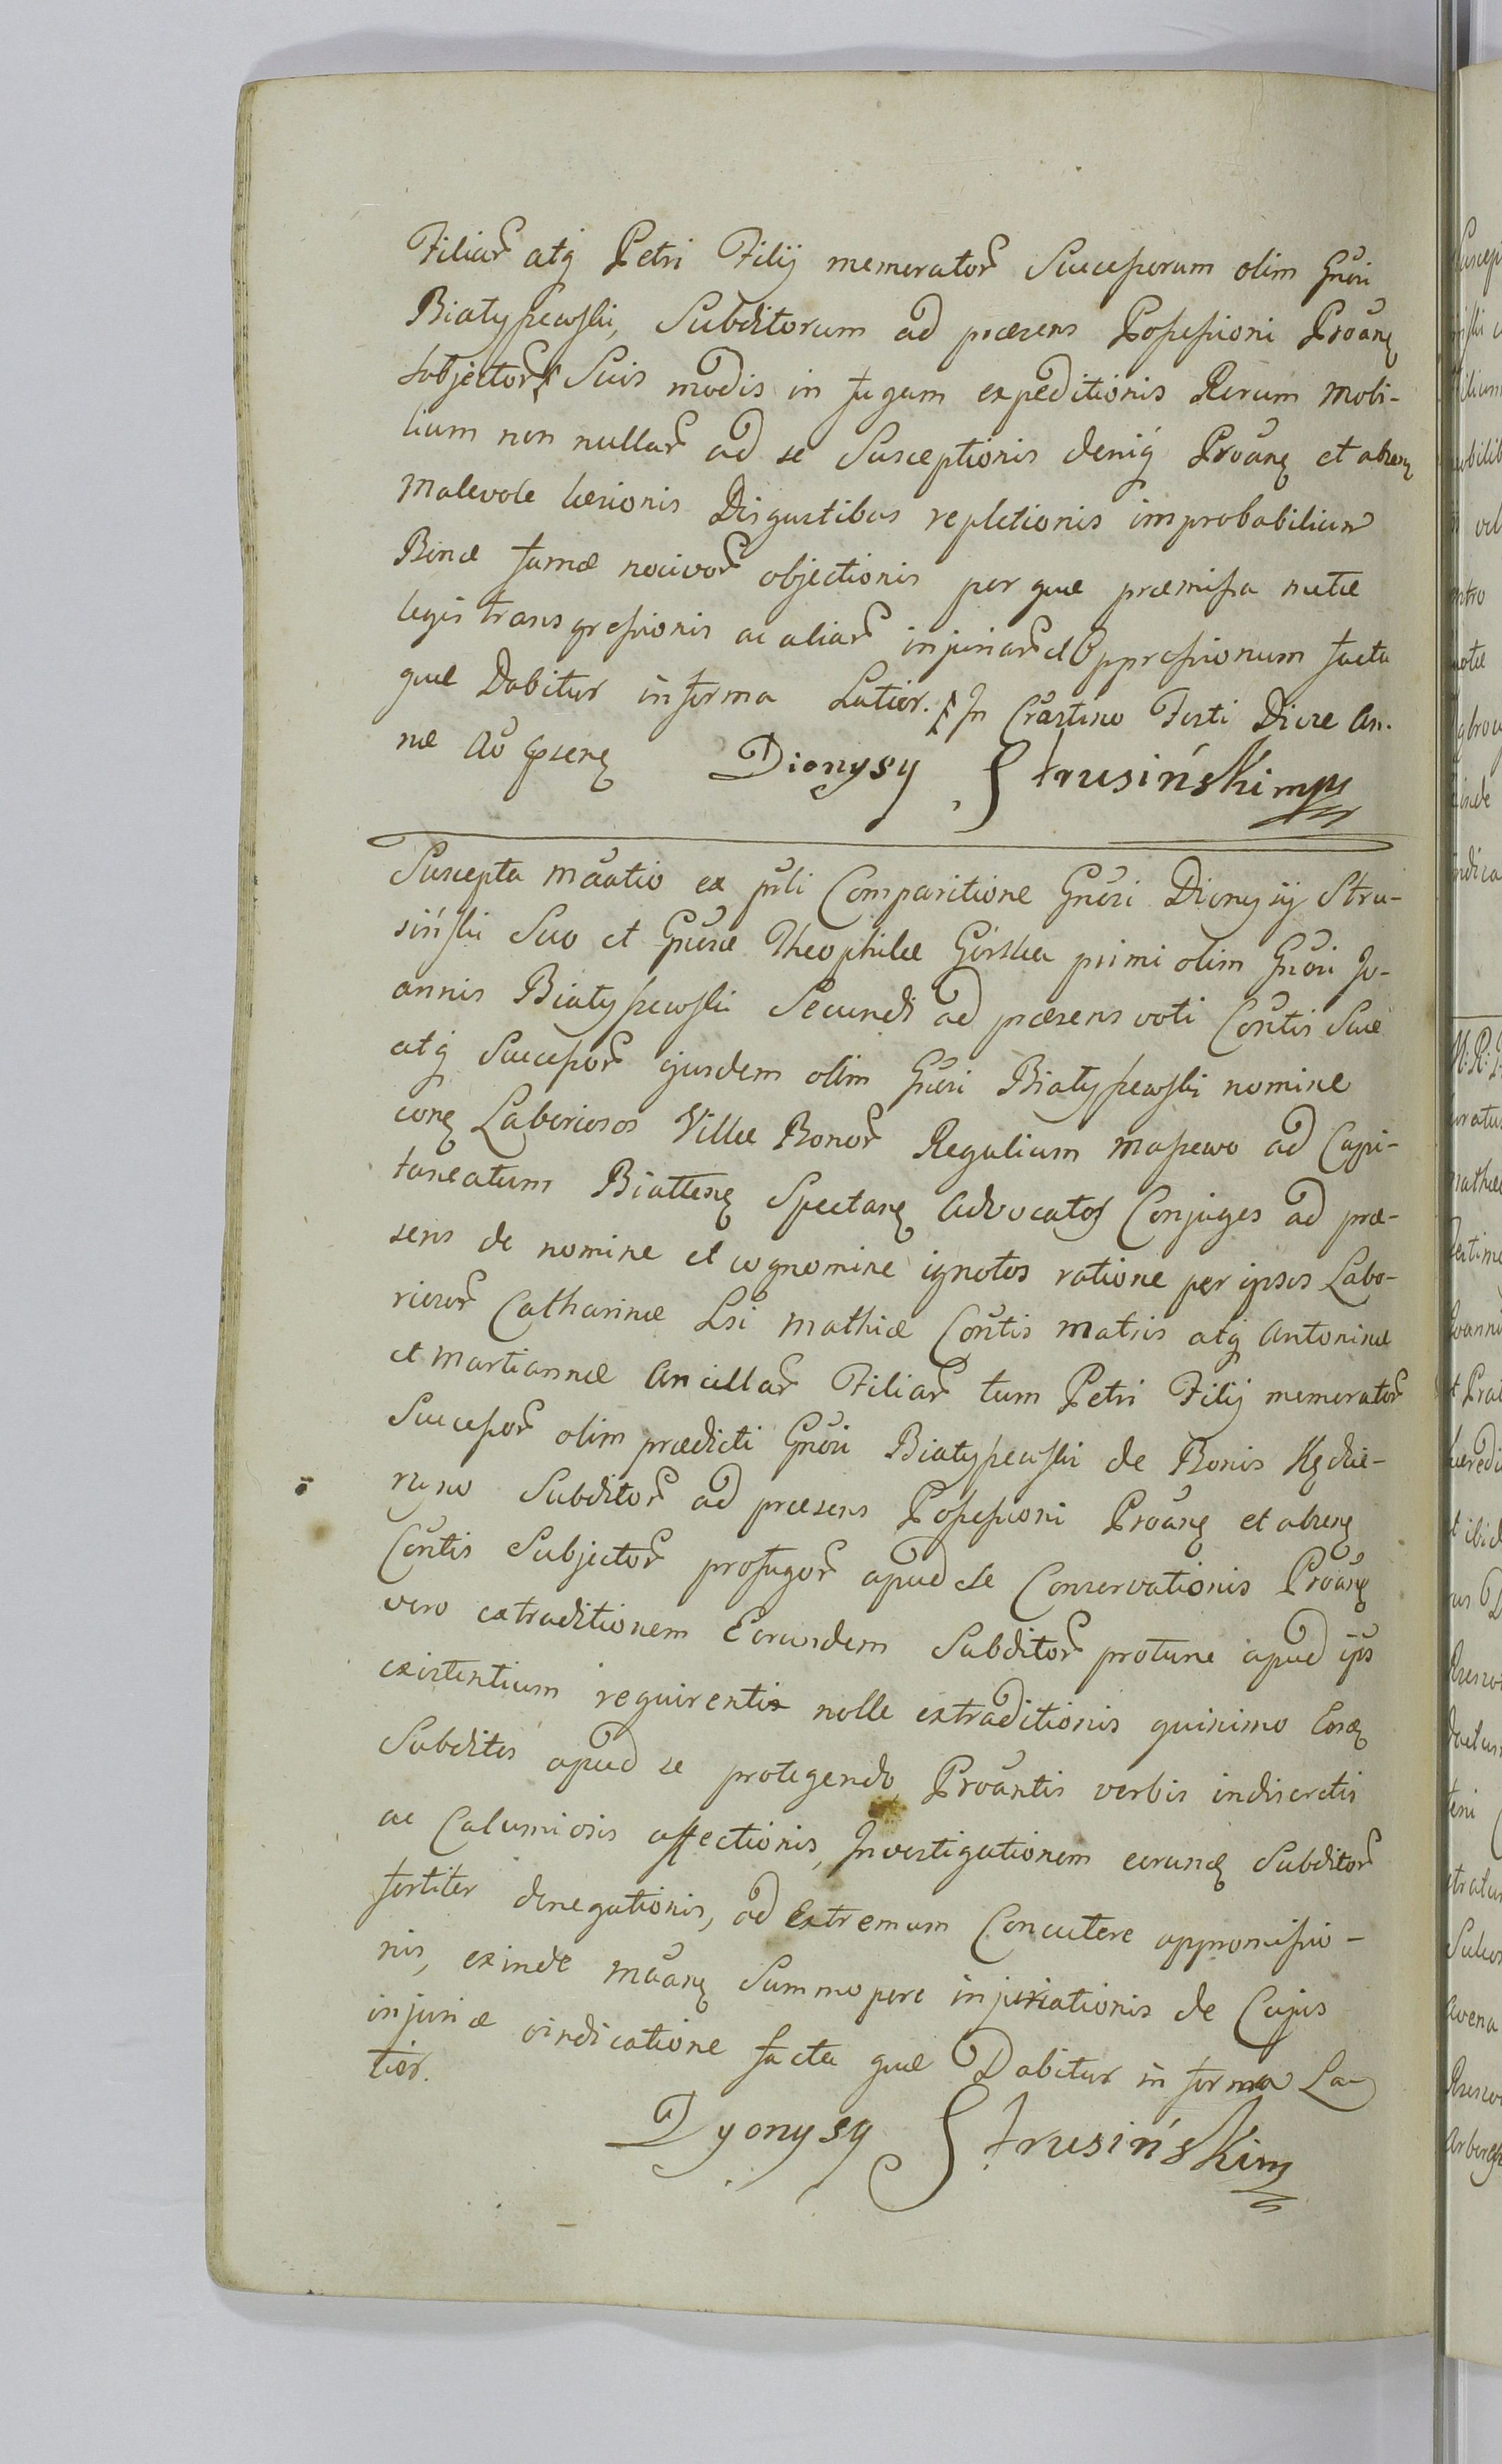 Filiar atq Petri Filij memorator Successorum olim Gnosi
Białyszewski, Subditorum ad præsens Possessioni Proanq
subjector Suis modis in fugam expeditionis Rerum mobi-
lium non nullar ad se Susceptionis deniq Proanq et absenq
malevole læsionis Disgustibus repletionis improbabilium
Bonæ famæ nocivor objectionis per quæ præmissa metæ
legis transgressionis ac aliar injuriar et Oppressionum facta
quæ Dabitur in forma Latior. In Crastino Festi Divæ An-
næ Ao
Dionysy Strusiński mp
Suscepta maatio ex psli Comparitione Gnosi Dionysij Stru-
siński Suo et Gnosæ Theophilæ Górska primi olim Gnosi Jo-
annis Białyszewski Secundi ad præsens voti Contis Suæ
atq Successor ejusdem olim Gnosi Białyszewski nomine
conq Laboriosos Villæ Bonor Regalium Massewo ad Capi-
taneatum Spectanq Advocatos Conjuges ad præ-
sens de nomine et cognomine ignotos ratione per ipsos Labo-
riosor Catharinæ Lsi Mathiæ Contis matris atq Antoninæ
et Martiannæ Ancillar Filiar tum Petri Filij memorator
Successor olim prædicti Gnosi Białyszewski de Bonis Kędzie-
rzyno Subditor ad præsens Possessioni Proanq et absenq
Contis Subjector profugor apud se Conservationis Proanq
vero extraditionem Eorundem Subditor protunc apud ips
existentium requirentis nolle extraditionis quinimo Eosdq
Subditos apud se protegendo, Proantis verbis indiscretis
ac Calumiosis affectionis, Investigationem eorundq Subditor
fortiter denegationis, ad Extremum Concutere appromissio-
nis, exinde maanq Summopere injuriationis de Cujus
injuriæ vindicatione facta quæ Dabitur in forma La-
tior.
Dyonysy Strusiński m